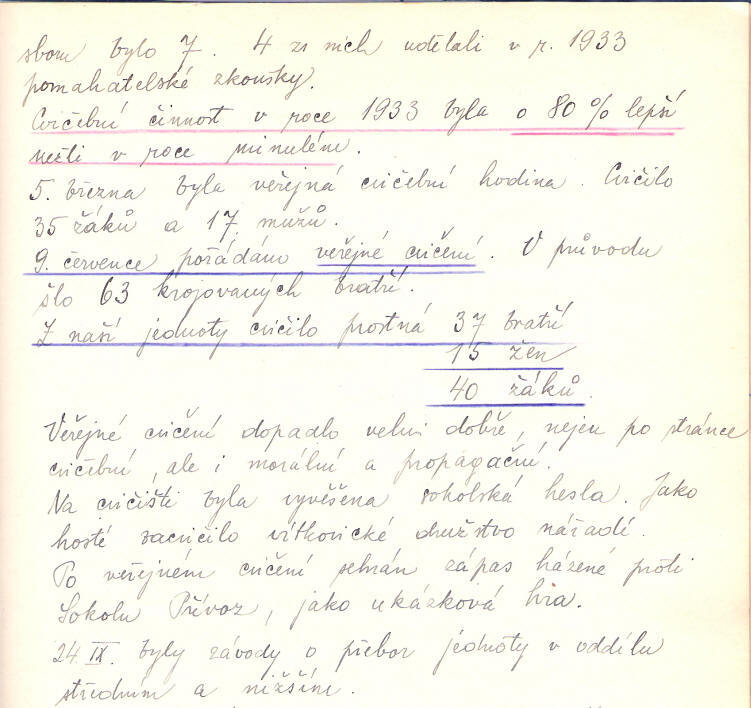 sboru bylo 7. 4 z nich udělali v r. 1933
pomahatelské zkoušky.
Cvičební činnost v roce 1933 byla o 80% lepší
nežli v roce minulém.
5. března byla veřejná cvičební hodina. Cvičilo
35 žáků a 17 mužů.
9. července pořádáno veřejné cvičení. V průvodu
šlo 63 krojovaných bratří.
Z naší jednoty cvičilo prostná 37 bratří
15 žen
40 žáků.
Veřejné cvičení dopadlo velmi dobře, nejen po stránce
cvičební, ale i morální a propagační.
Na cvičišti byla vyvěšena sokolská hesla. Jako
hosté zacvičilo vítkovické družstvo nářadí.
Po veřejném cvičení sehrán zápas házené proti
Sokolu Přívoz, jako ukázková hra.
24. IX. byly závody o přebor jednoty v oddílu
středním a nižším.